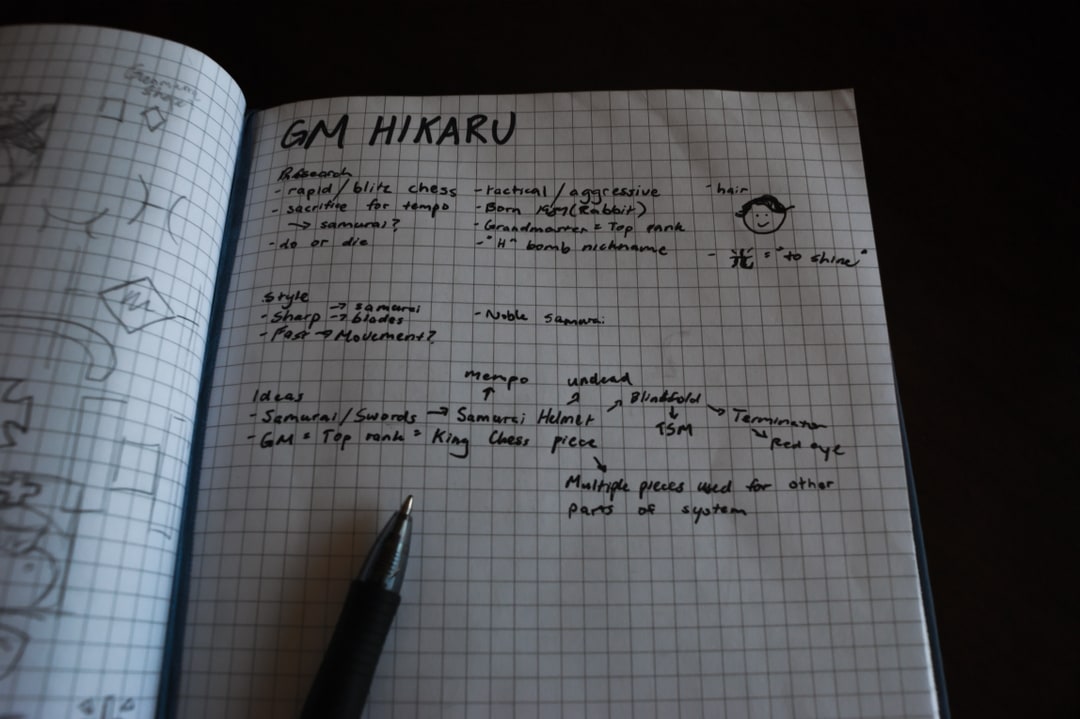 Geometric
shapes
GM HIKARU
Research
- rapid/blitz chess
- sacrifice for tempo
→ samurai?
- do or die
- tactical/aggressive
- Born (Rabbit)
- Grandmaster = Top rank
- "H" bomb nickname
- hair
- = "to shine"
Style
- Sharp → samurai
→ blades
- Fast → Movement?
- Noble samurai
Ideas
mempo
undead
- Samurai/Swords → Samurai Helmet
Blindfold
TSM
Terminator
Red eye
- GM = Top rank = King Chess piece
Multiple pieces used for other
parts of system